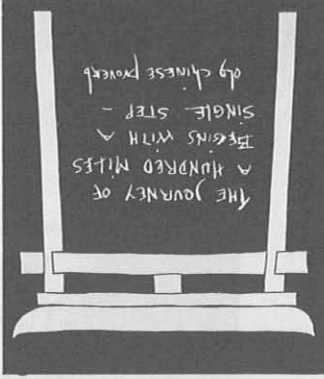 THE JOURNEY OF
A HUNDRED MILES
BEGINS WITH A
SINGLE STEP -
old CHINESE PROVERB